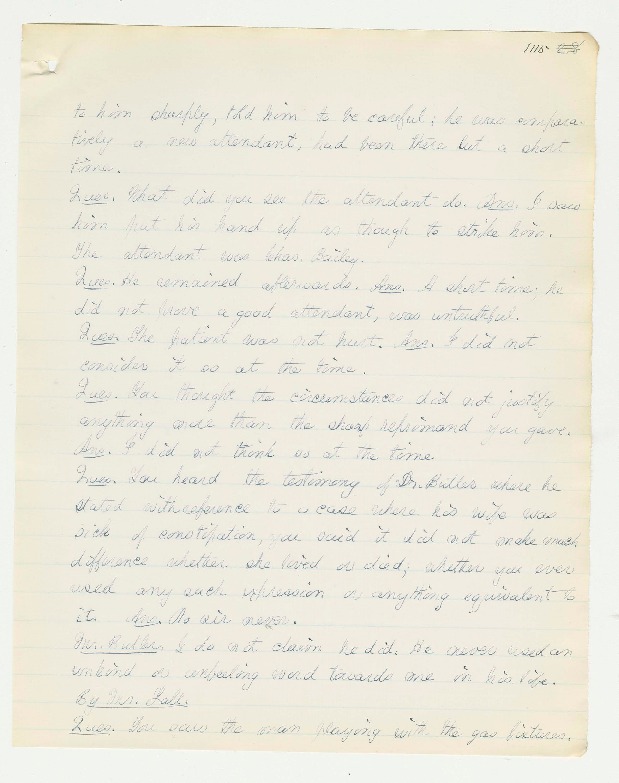 1115
to him sharply, told him to be careful; he was compara-
tively a new attendant, had been there but a short
time.
Ques. What did you see the attendant do. Ans. I saw
him put his hand up as though to strike him.
The attendant was Chas. Bailey.
Ques. He remained afterwards. Ans. A short time; he
did not prove a good attendant, was untruthful.
Ques. The patient was not hurt. Ans. I did not
consider it so at the time.
Ques. You thought the circumstances did not justify
anything more than the sharp reprimand you gave.
Ans. I did not think so at the time.
Ques. You heard the testimony of Dr. Butler where he
stated with reference to a case where his wife was
sick of constipation, you said it did not make much
difference whether she lived or died; whether you ever
used any such expression or anything equivalent to
it. Ans. No sir never.
Mr. Butler. I do not claim he did. He never used an
unkind or unfeeling word towards me in his life.
By Mr.
Ques. You saw the man playing with the gas fixtures.